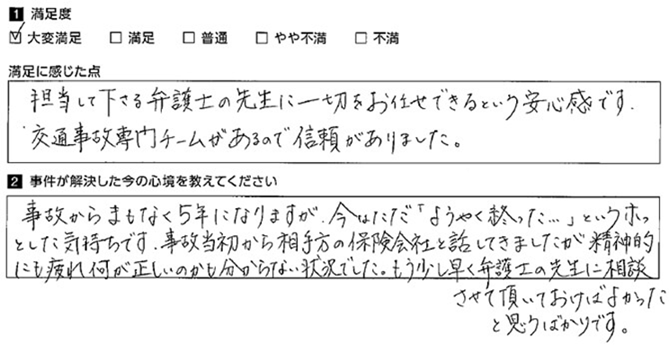 1 満足度
☑ 大変満足 □ 満足 □ 普通 □ やや不満 □ 不満
満足に感じた点
担当して下さる弁護士の先生に一切をお任せできるという安心感です.
交通事故専門チームがあるので信頼がありました。
2 事件が解決した今の心境を教えてください
事故からまもなく5年になりますが、今はただ「ようやく終った…」というホッ
とした気持ちです.事故当初から相手方の保険会社と話してきましたが精神的
にも疲れ何が正しいのかも分からない状況でした。もう少し早く弁護士の先生に相談
させて頂いておけばよかった
と思うばかりです。